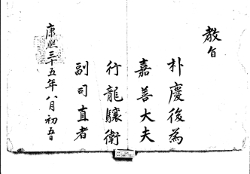 教旨
朴慶後爲
嘉善大夫
行龍驤衛
副司直者
康熙三十五年八月初五日